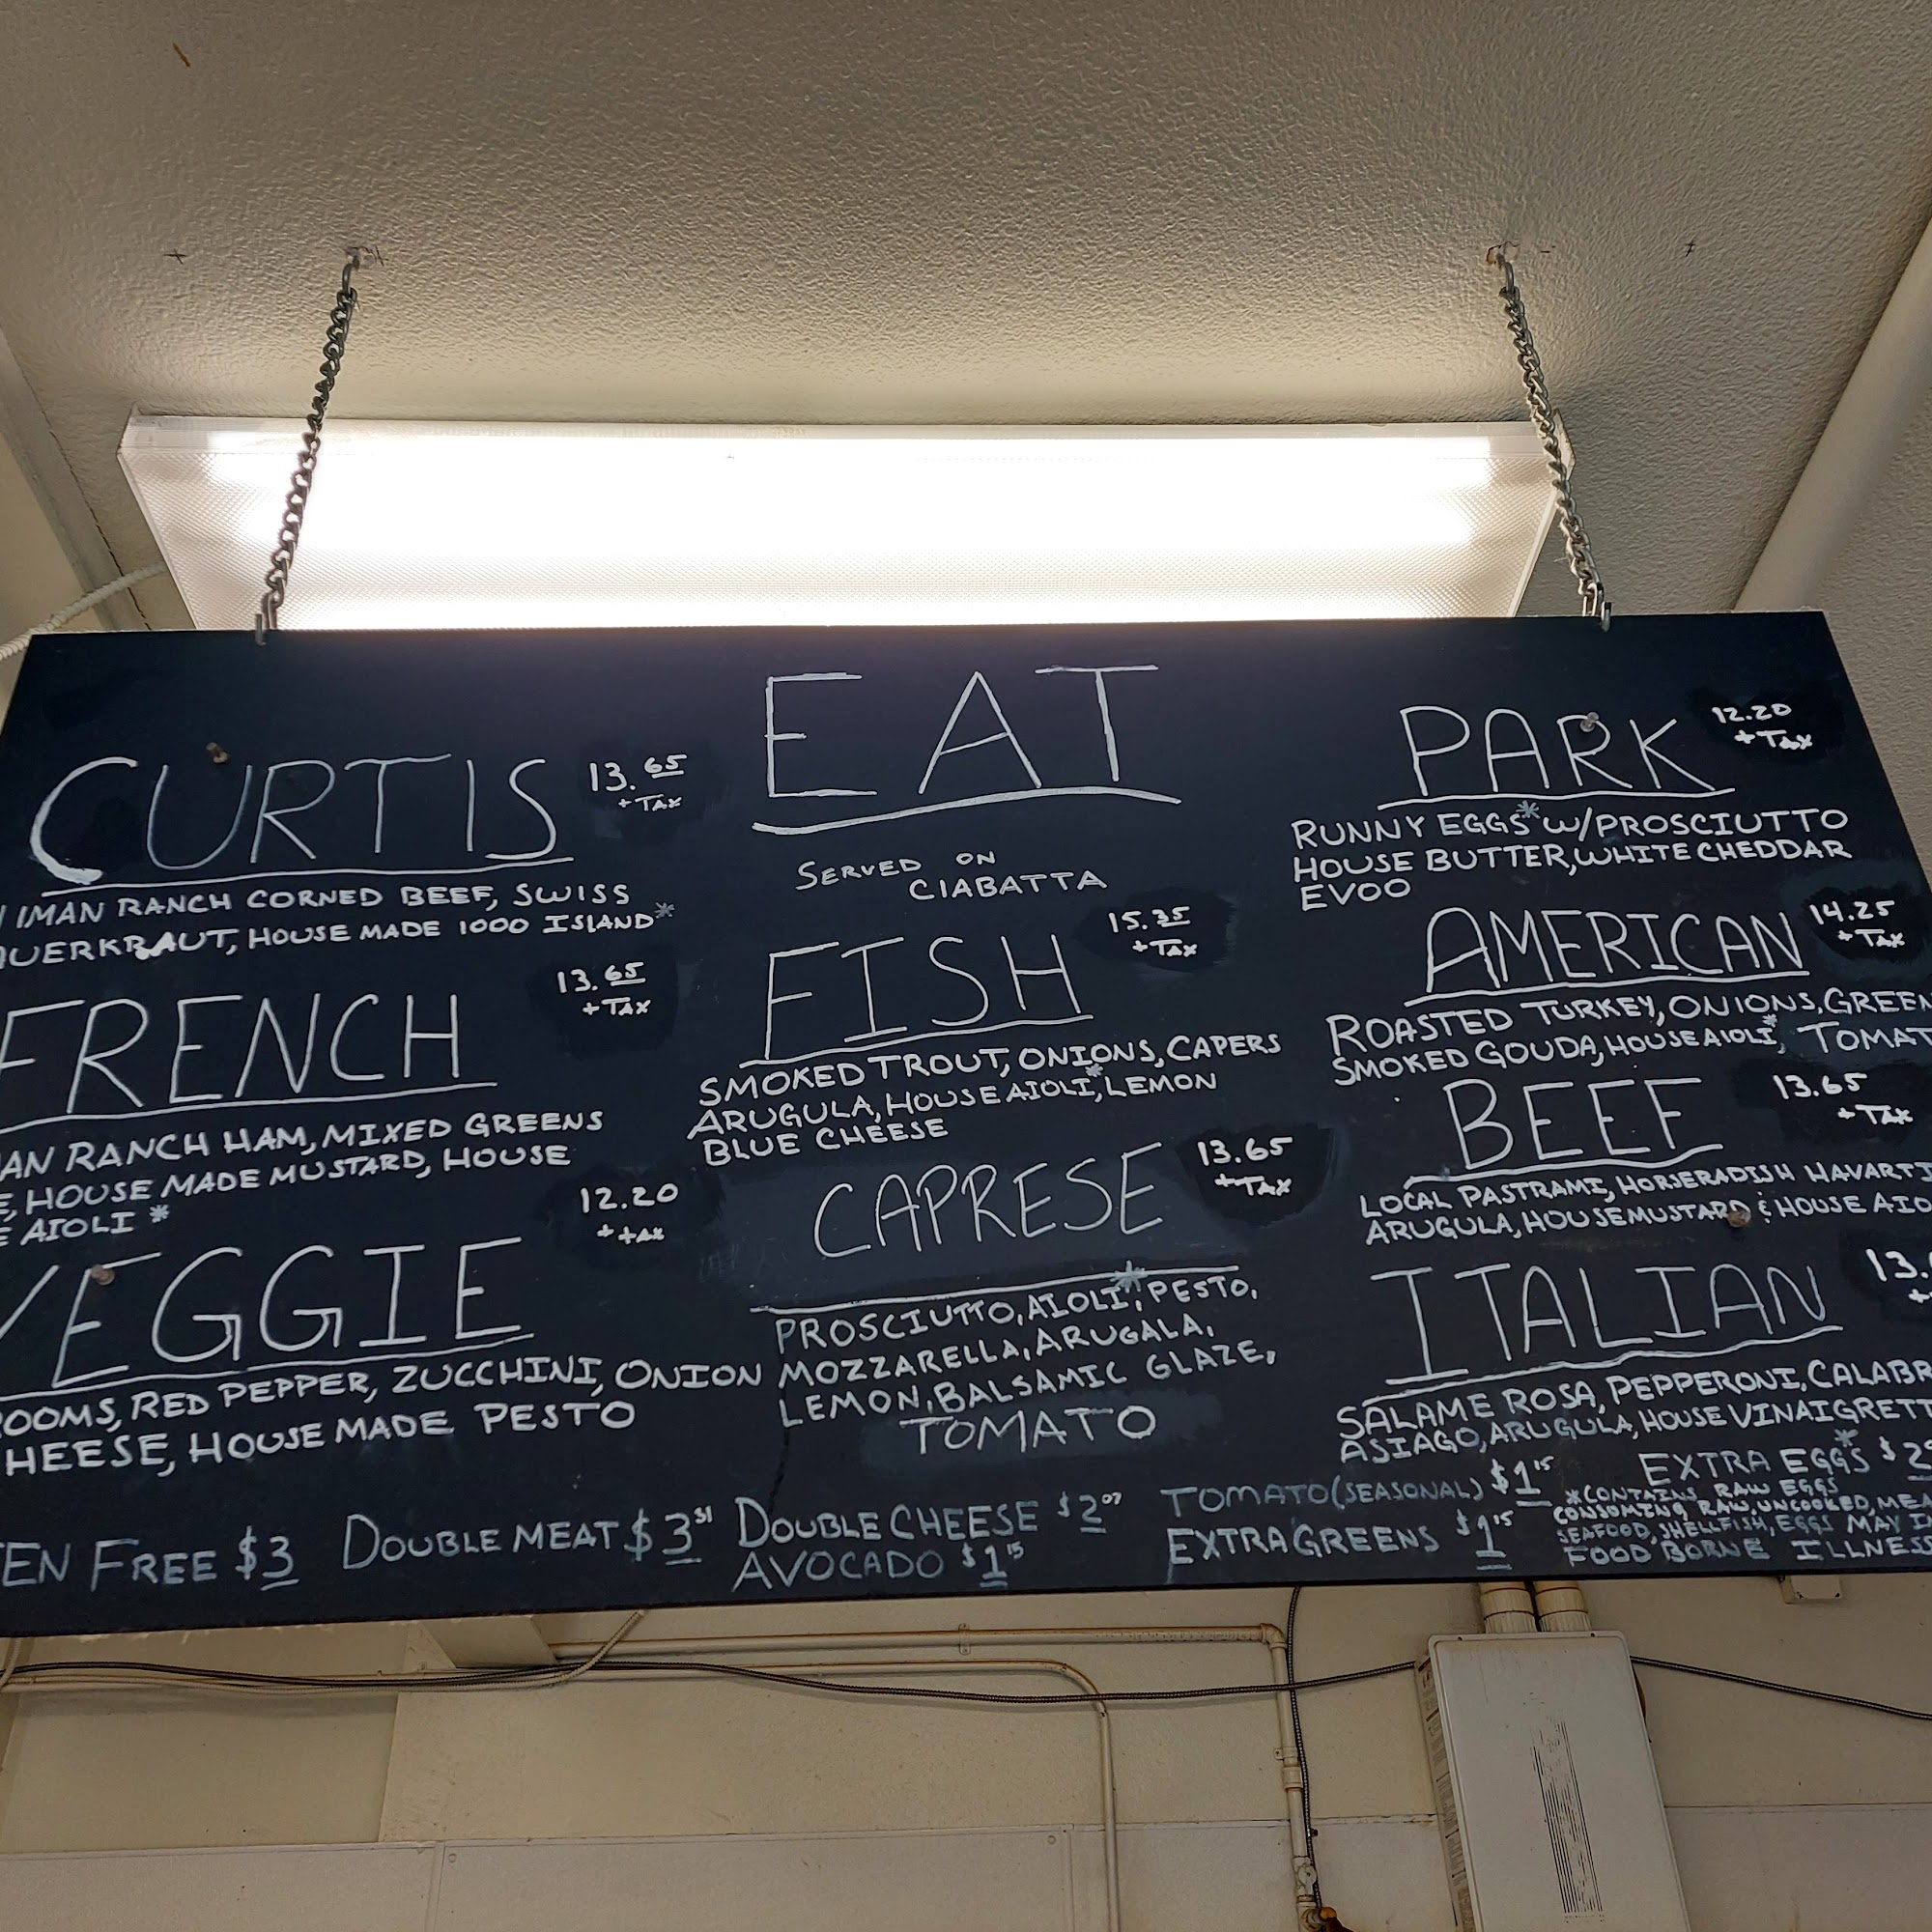 EAT
SERVED ON
CIABATTA
CURTIS 13.65
+ TAX
IMAN RANCH CORNED BEEF, SWISS
UERKRAUT, HOUSE MADE 1000 ISLAND*
FRENCH 13.65
+ TAX
AN RANCH HAM, MIXED GREENS
E, HOUSE MADE MUSTARD, HOUSE
E AIOLI *
VEGGIE 12.20
+ tax
OOMS, RED PEPPER, ZUCCHINI, ONION
HEESE, HOUSE MADE PESTO
FISH 15.35
+ TAX
SMOKED TROUT, ONIONS, CAPERS
ARUGULA, HOUSE AIOLI*, LEMON
BLUE CHEESE
CAPRESE 13.65
+ TAX
PROSCIUTTO, AIOLI*, PESTO,
MOZZARELLA, ARUGALA,
LEMON, BALSAMIC GLAZE,
TOMATO
PARK 12.20
+ TAX
RUNNY EGGS* W/PROSCIUTTO
HOUSE BUTTER, WHITE CHEDDAR
EVOO
AMERICAN 14.25
+ TAX
ROASTED TURKEY, ONIONS, GREEN
SMOKED GOUDA, HOUSE AIOLI*, TOMAT
BEEF 13.65
+ TAX
LOCAL PASTRAMI, HORSERADISH HAVART
ARUGULA, HOUSE MUSTARD & HOUSE AIO
ITALIAN 13.
SALAME ROSA, PEPPERONI, CALABR
ASIAGO, ARUGULA, HOUSE VINAIGRETT
TEN FREE $3
DOUBLE MEAT $3 51
DOUBLE CHEESE $2 07
AVOCADO $1 15
TOMATO (SEASONAL) $1 15
EXTRA GREENS $1 15
EXTRA EGGS* $2
*CONTAINS RAW EGGS
CONSOMING RAW, UNCOOKED, MEA
SEAFOOD, SHELLFISH, EGGS MAY I
FOOD BORNE ILLNESS